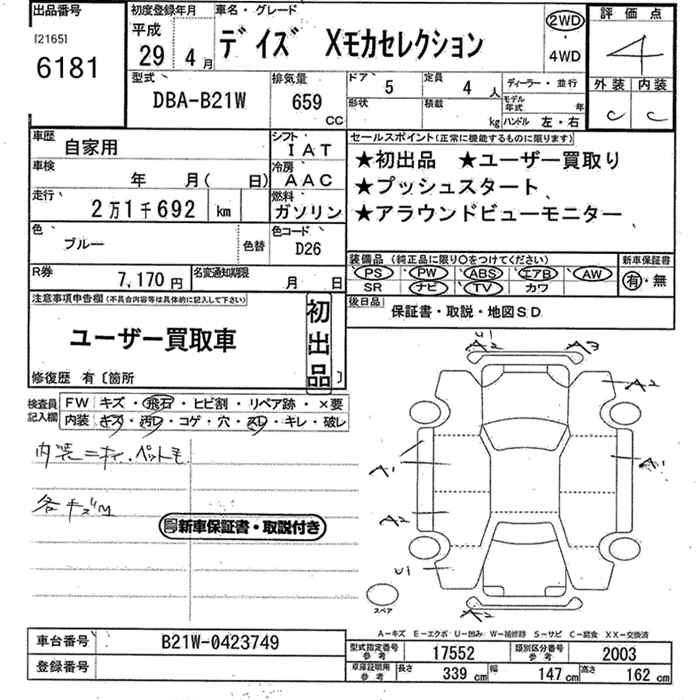 出品番号
[2165]
6181
初度登録年月
平成
29年 4月
車名・グレード
デイズ Xモカセレクション
2WD
・
4WD
評価点
4
外装 内装
C C
型式
DBA-B21W
排気量
659
CC
ドア 5
形状
定員 4 人
積載 kg
ディーラー・並行
モデル年式 年
ハンドル 左・右
車歴 自家用
車検 年 月( 日)
走行 2万1千692 km
色 ブルー
色替
シフト IAT
冷房 AAC
燃料 ガソリン
色コード D26
セールスポイント(正常に機能するものに限ります)
★初出品 ★ユーザー買取り
★プッシュスタート
★アラウンドビューモニター
R券 7,170円
名変通知期限 月 日
装備品(純正品に限り〇をつけてください)
PS PW ABS エアB AW
SR ナビ TV カワ
新車保証書
有・無
後日品
保証書・取説・地図SD
注意事項申告欄(不具合内容等は具体的に記入して下さい)
ユーザー買取車
初出品
修復歴 有〔箇所 〕
検査員記入欄
FW キズ・飛石・ヒビ割・リペア跡・×要
内装 キズ・汚レ・コゲ・穴・スレ・キレ・破レ
内装ニオイ・ペット毛
各キズM
新車保証書・取説付き
U1
A2 A3
A2
A1 A1
A2
U1
A2
スペア
A-キズ E-エクボ U-凹み W-補修跡 S-サビ C-腐食 XX-交換済
車台番号 B21W-0423749
登録番号
型式指定番号 参考 17552
類別区分番号 参考 2003
車庫証明用 参考 長さ 339 cm 幅 147 cm 高さ 162 cm